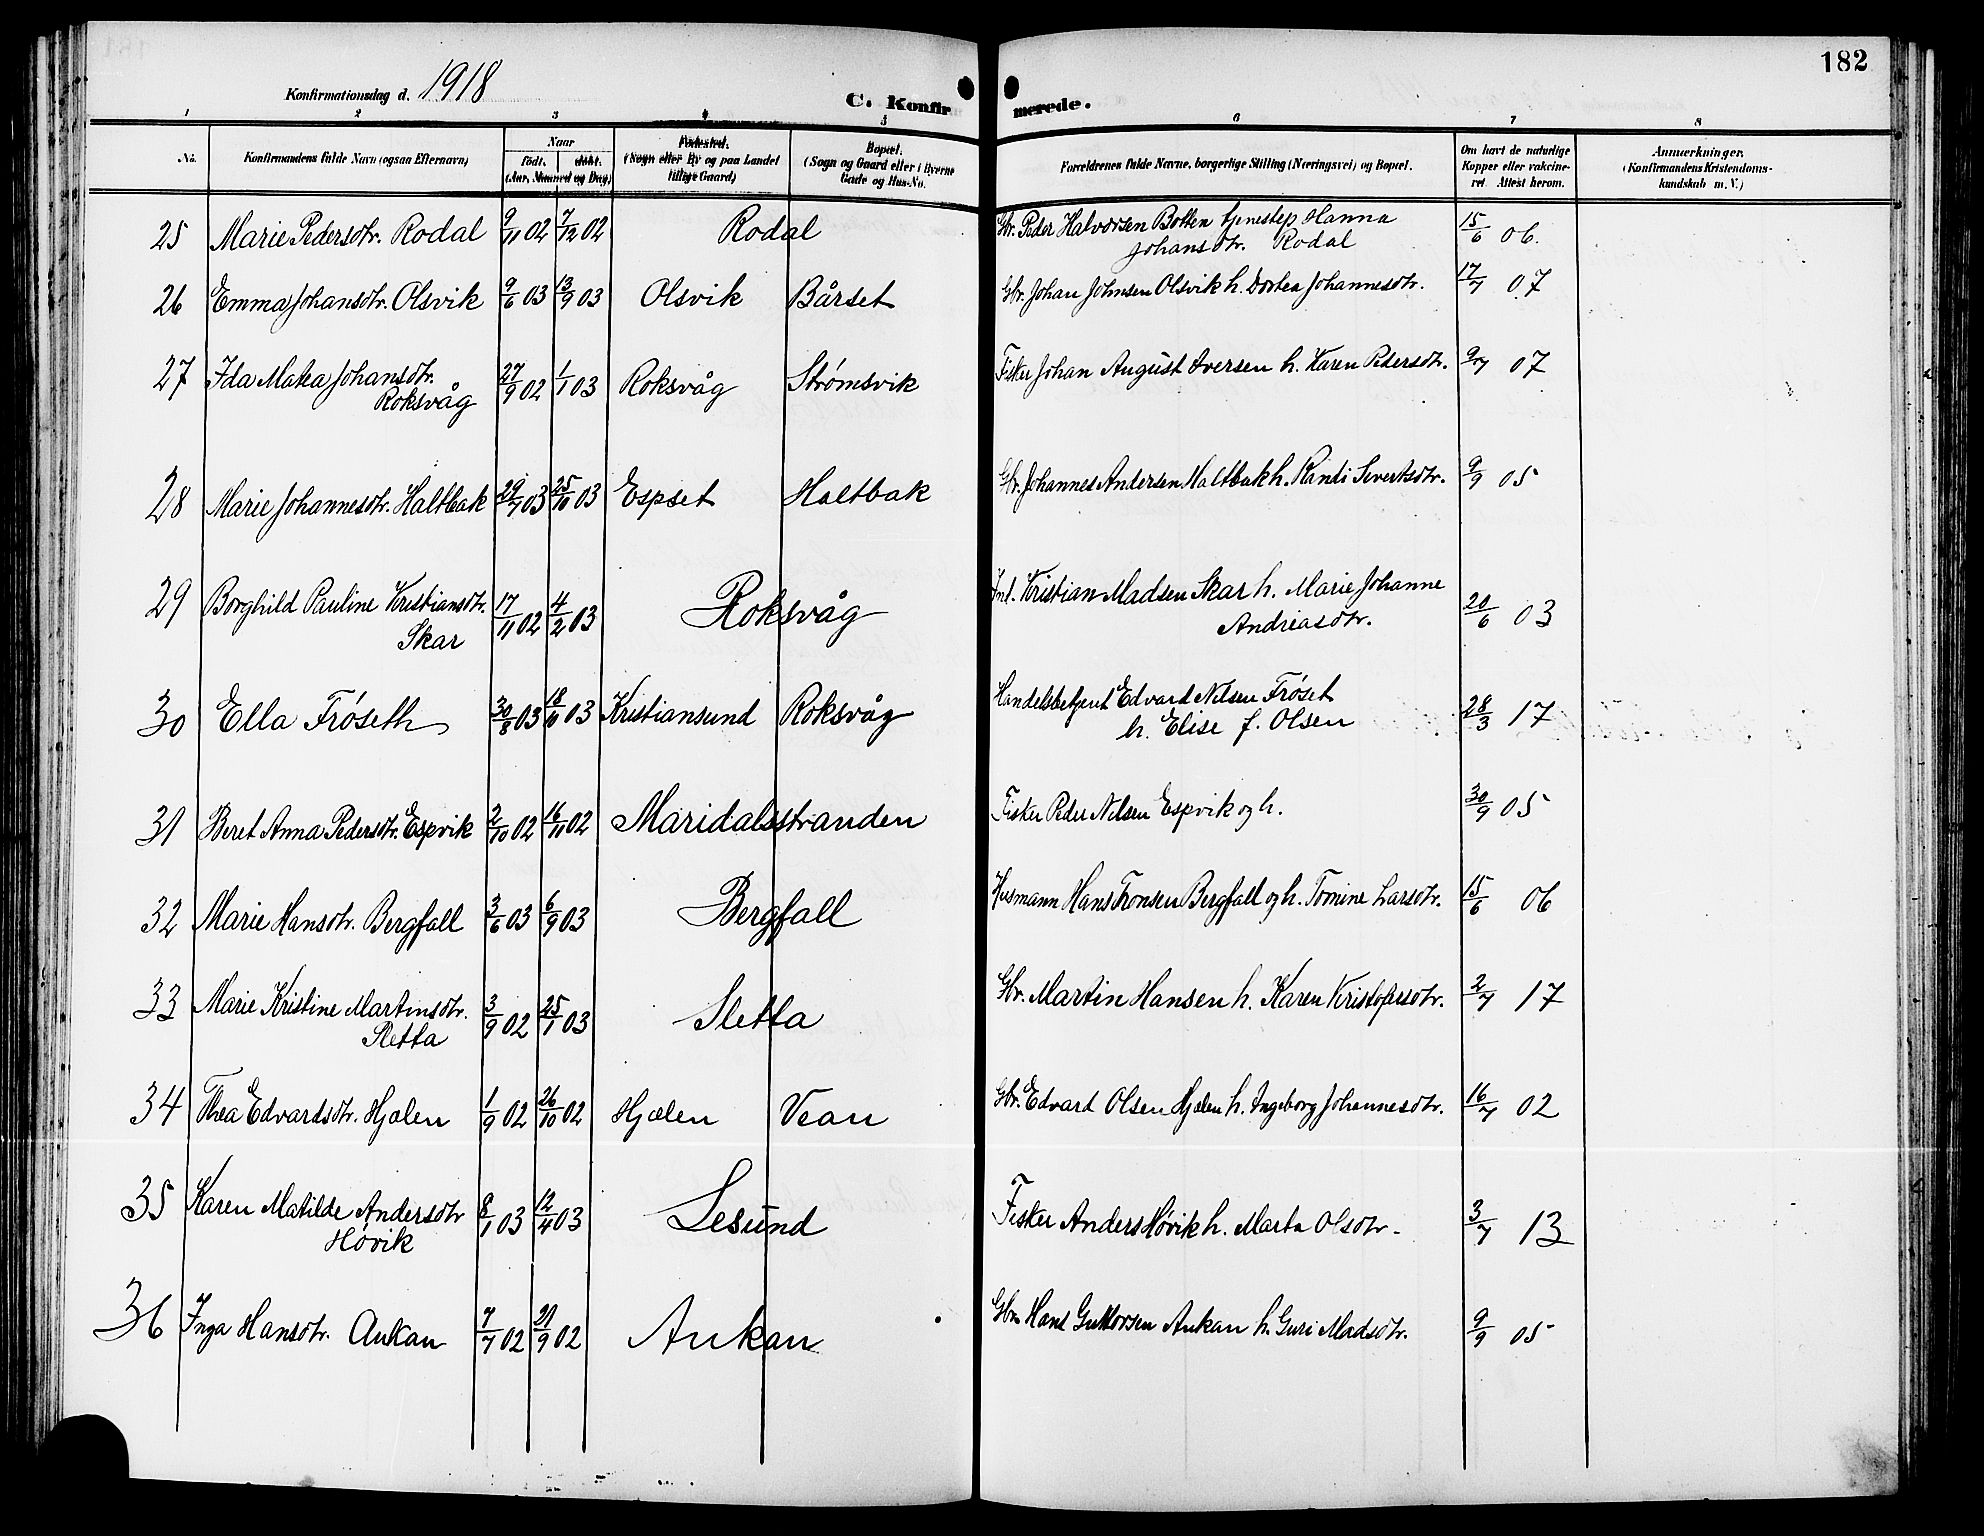 182
Konfirmationsdag d. 1918
C. Konfir merede.
1 2 3 4 5 6 7 8
No. Konfirmandens fulde Navn (ogsaa Efternavn) Naar født. døbt. (Aar, Maaned og Dag) Fødested. (Sogn eller By og paa Landet tillige Gaard) Bopæl. (Sogn og Gaard eller i Byerne Gade og Hus-No. Forældrenes fulde Navne, borgerlige Stilling (Næringsvei) og Bopæl. Om havt de naturlige Kopper eller vakcineret Attest herom. Anmærkninger. (Konfirmandens Kristendomskundskab m. V.)
25 Marie Pedersdtr. Rodal 9/11 02 7/12 02 Rodal Gbr. Peder Halvorsen Botten tjenestep Hanna 15/6 06.
Johansdtr. Rodal
26 Emma Johansdtr. Olsvik 9/6 03 13/9 03 Olsvik Bårset Gbr. Johan Johnsen Olsvik h. Dortea Johannesdtr. 17/7 07
27 Ida Matea Johansdtr. 27/9 02 1/1 03 Roksvåg Strømsvik Fisker Johan August Iversen h. Karen Pedersdtr. 9/7 07
Roksvåg
28 Marie Johannesdtr. Haltbak 29/7 03 25/10 03 Espset Haltbak Gbr. Johannes Andersen Haltbak h. Randi Severtsdtr. 9/9 05
29 Borghild Pauline Kristiansdtr. 17/11 02 4/2 03 Roksvåg Inl. Kristian Madsen Skar h. Marie Johanne 20/6 03
Skar Andreasdtr.
30 Ella Frøseth 30/8 03 18/10 03 Kristiansund Roksvåg Handelsbetjent Edvard Nilsen Frøset 28/3 17
h. Elise f. Olsen
31 Beret Anna Pedersdtr. Espvik 2/10 02 16/11 02 Maridalsstranden Fisker Peder Nilsen Espvik og h. 30/9 05
32 Marie Hansdtr. Bergfall 3/6 03 6/9 03 Bergfall Husmann Hans Tronsen Bergfall og h. Tomine Larsdtr. 15/6 06
33 Marie Kristine Martinsdtr. 3/9 02 25/1 03 Sletta Gbr. Martin Hansen h. Karen Kristofersdtr. 2/7 17
Sletta
34 Thea Edvardsdtr. Hjælen 1/9 02 26/10 02 Hjælen Vean Gbr. Edvard Olsen Hjælen h. Ingeborg Johannesdtr. 16/7 02
35 Karen Matilde Andersdtr 8/1 03 12/4 03 Lesund Fisker Anders Høvik h. Marta Olsdtr. 3/7 13
Høvik
36 Inga Hansdtr. Aukan 7/7 02 21/9 02 Aukan Gbr. Hans Guttorsen Aukan h. Guri Madsdtr. 9/9 05